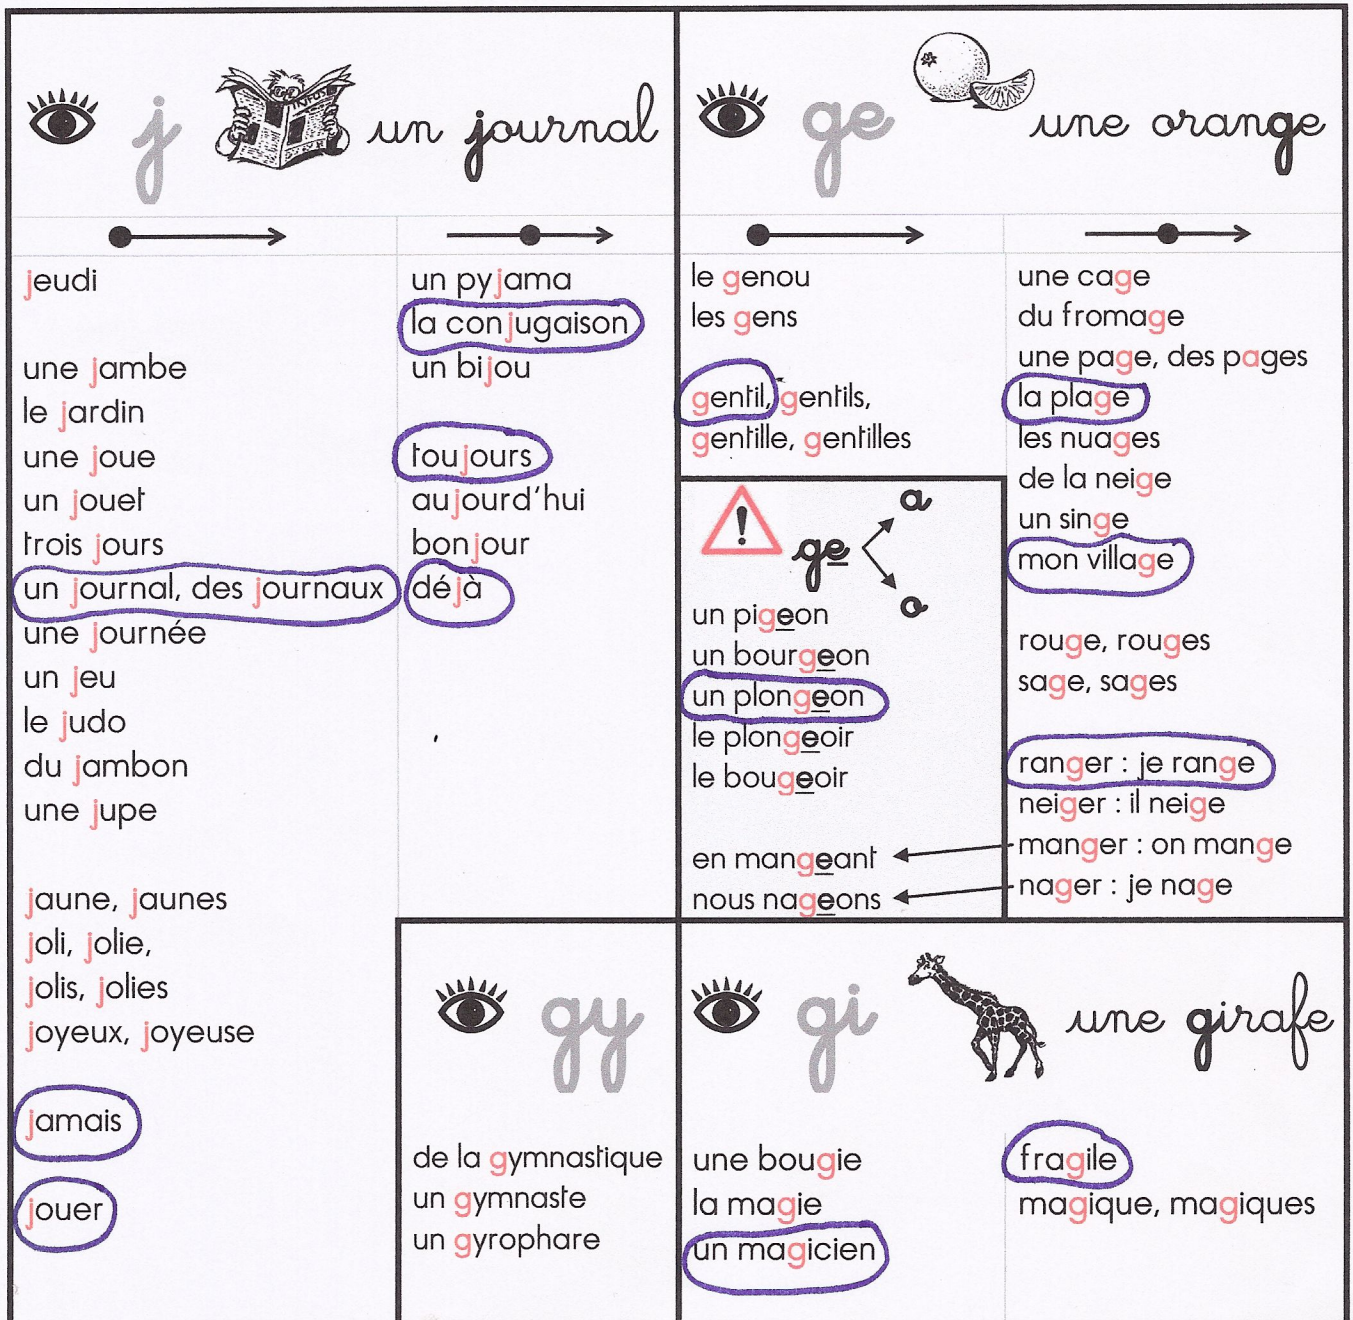 j
INFOS
un journal
jeudi
une jambe
le jardin
une joue
un jouet
trois jours
un journal, des journaux
une journée
un jeu
le judo
du jambon
une jupe
jaune, jaunes
joli, jolie,
jolis, jolies
joyeux, joyeuse
jamais
jouer
un pyjama
la conjugaison
un bijou
toujours
aujourd'hui
bonjour
déjà
ge
une orange
le genou
les gens
gentil, gentils,
gentille, gentilles
!
ge
a
o
un pigeon
un bourgeon
un plongeon
le plongeoir
le bougeoir
en mangeant
nous nageons
une cage
du fromage
une page, des pages
la plage
les nuages
de la neige
un singe
mon village
rouge, rouges
sage, sages
ranger : je range
neiger : il neige
manger : on mange
nager : je nage
gy
de la gymnastique
un gymnaste
un gyrophare
gi
une girafe
une bougie
la magie
un magicien
fragile
magique, magiques